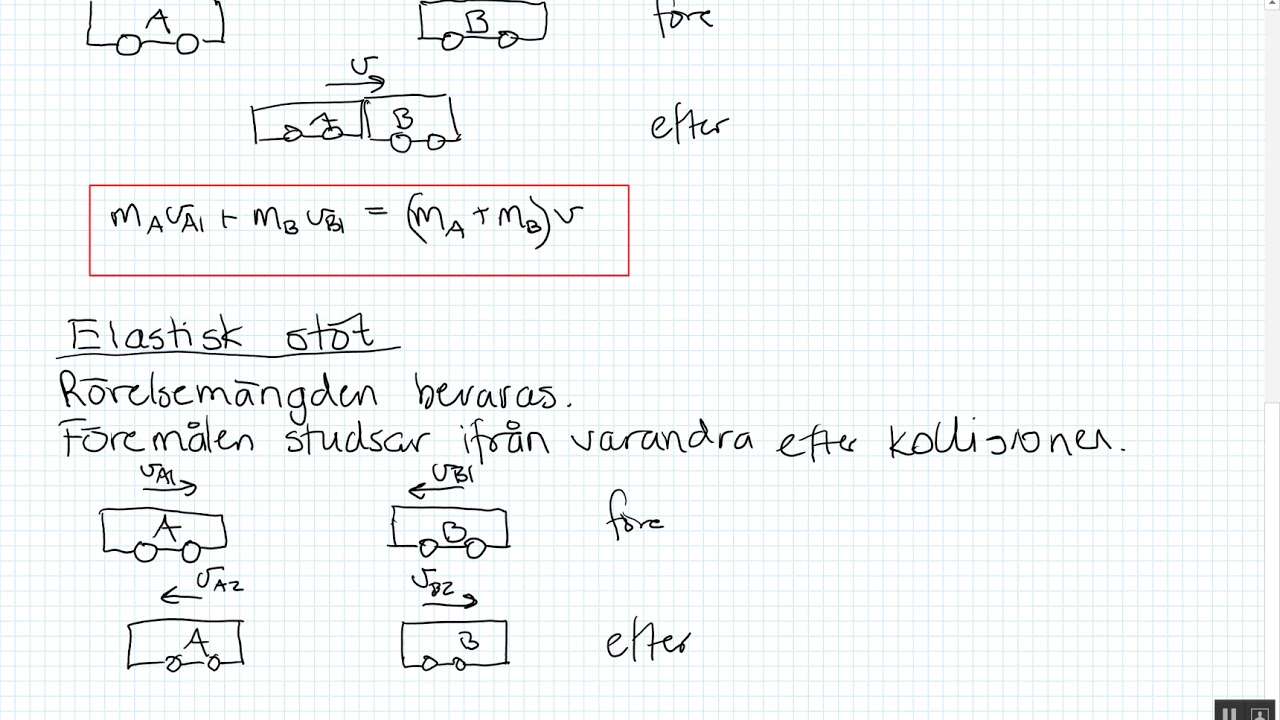 A B före
v
A B efter
m_A v_A1 + m_B v_B1 = (m_A + m_B) v
Elastisk stöt
Rörelsemängden bevaras.
Föremålen studsar ifrån varandra efter kollisionen.
v_A1 v_B1
A B före
v_A2 v_B2
A B efter